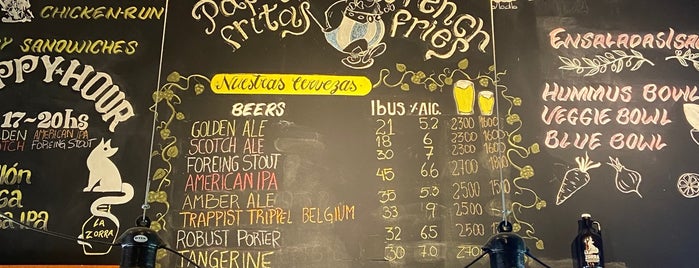 CHICKEN-RUN
SANDWICHES
HAPPY HOUR
17-20hs
GOLDEN AMERICAN IPA
SCOTCH FOREING STOUT
LA
ZORRA
fritas
French
fries
Nuestras Cervezas
BEERS IBUS % ALC.
GOLDEN ALE 21 5.2 2300 1600
SCOTCH ALE 18 6 2300 1600
FOREING STOUT 30 7 2700 1800
AMERICAN IPA 45 6.6
AMBER ALE 35 5.3 2500
TRAPPIST TRIPPEL BELGIUM 33 9
ROBUST PORTER 32 6.5
TANGERINE 30 7.0
ENSALADAS
HUMMUS BOWL
VEGGIE BOWL
BLUE BOWL